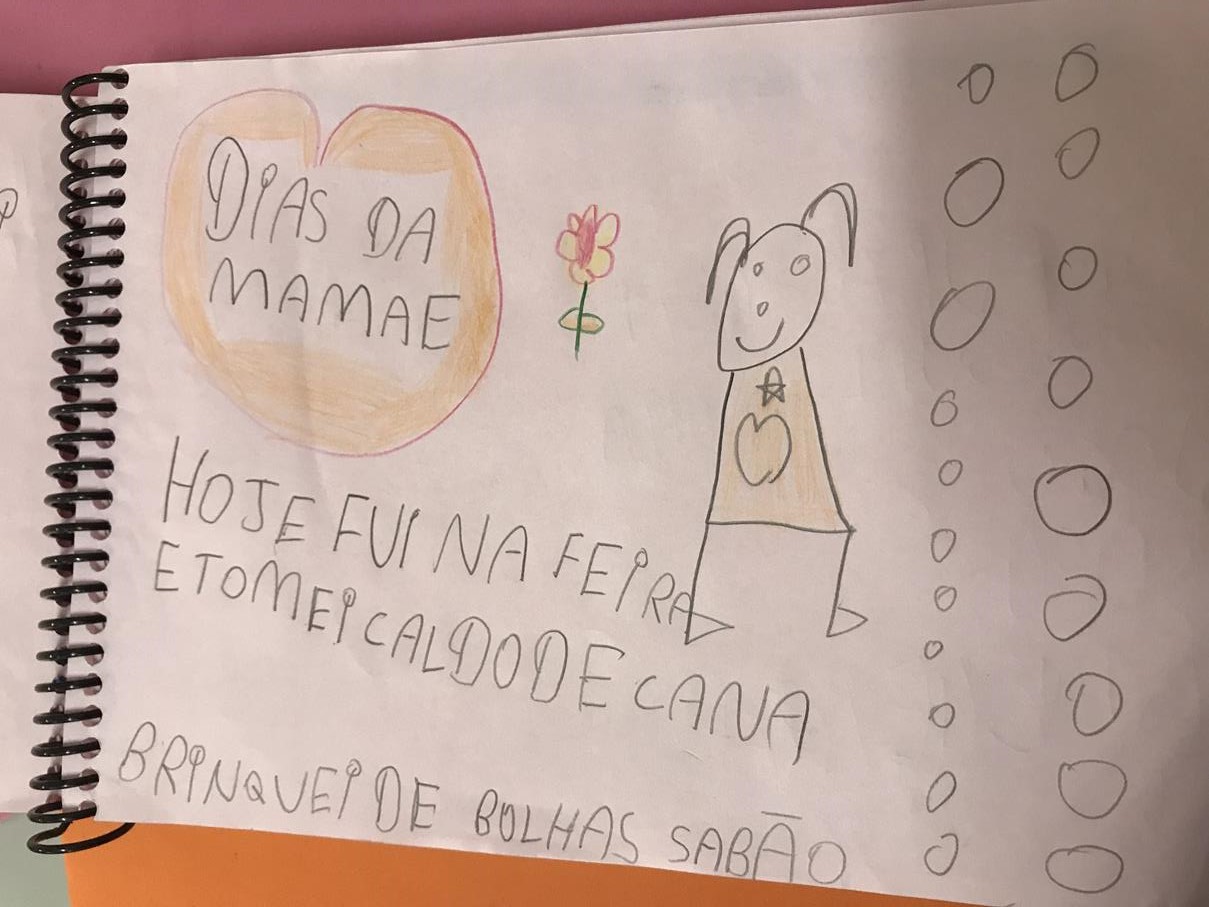 DIAS DA
MAMAE
HOJE FUI NA FEIRA
E TOMEI CALDO DE CANA
BRINQUEI DE BOLHAS SABÃO